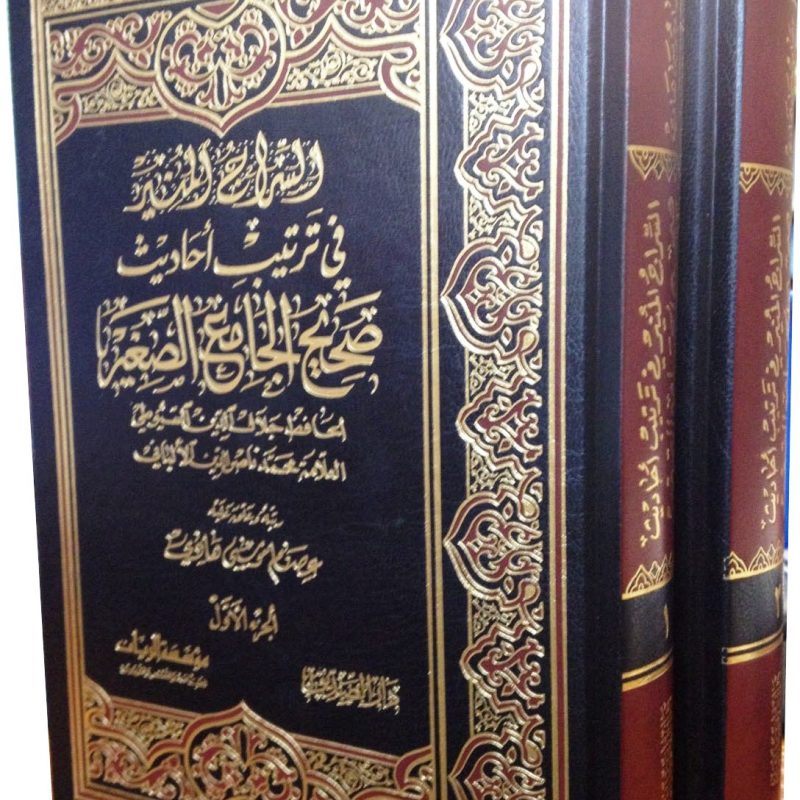 السِّرَاجُ المُنِيرُ
فِي تَرْتِيبِ أَحَادِيثِ
صَحِيحِ الجَامِعِ الصَّغِيرِ
الحافظ جلال الدين السيوطي
العلامة محمد ناصر الدين الألباني
رتبه وعلق عليه
عصام موسى هادي
الجزء الأول
مؤسسة الريان
السراج المنير في ترتيب أحاديث
١
السراج المنير في ترتيب أحاديث
٢